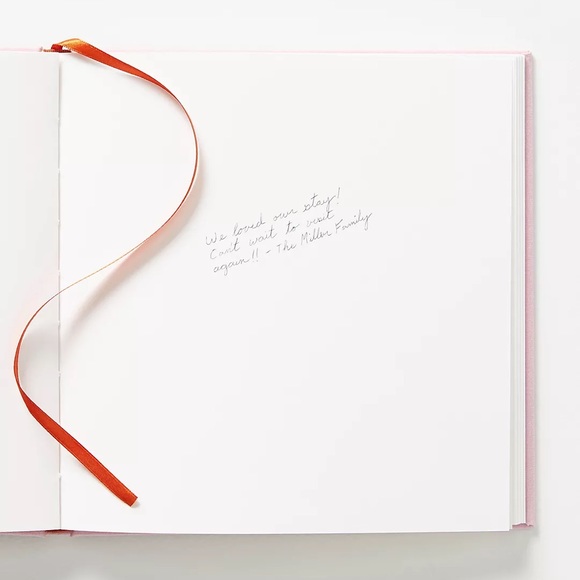 We loved our stay!
Can't wait to visit
again!! - The Miller Family